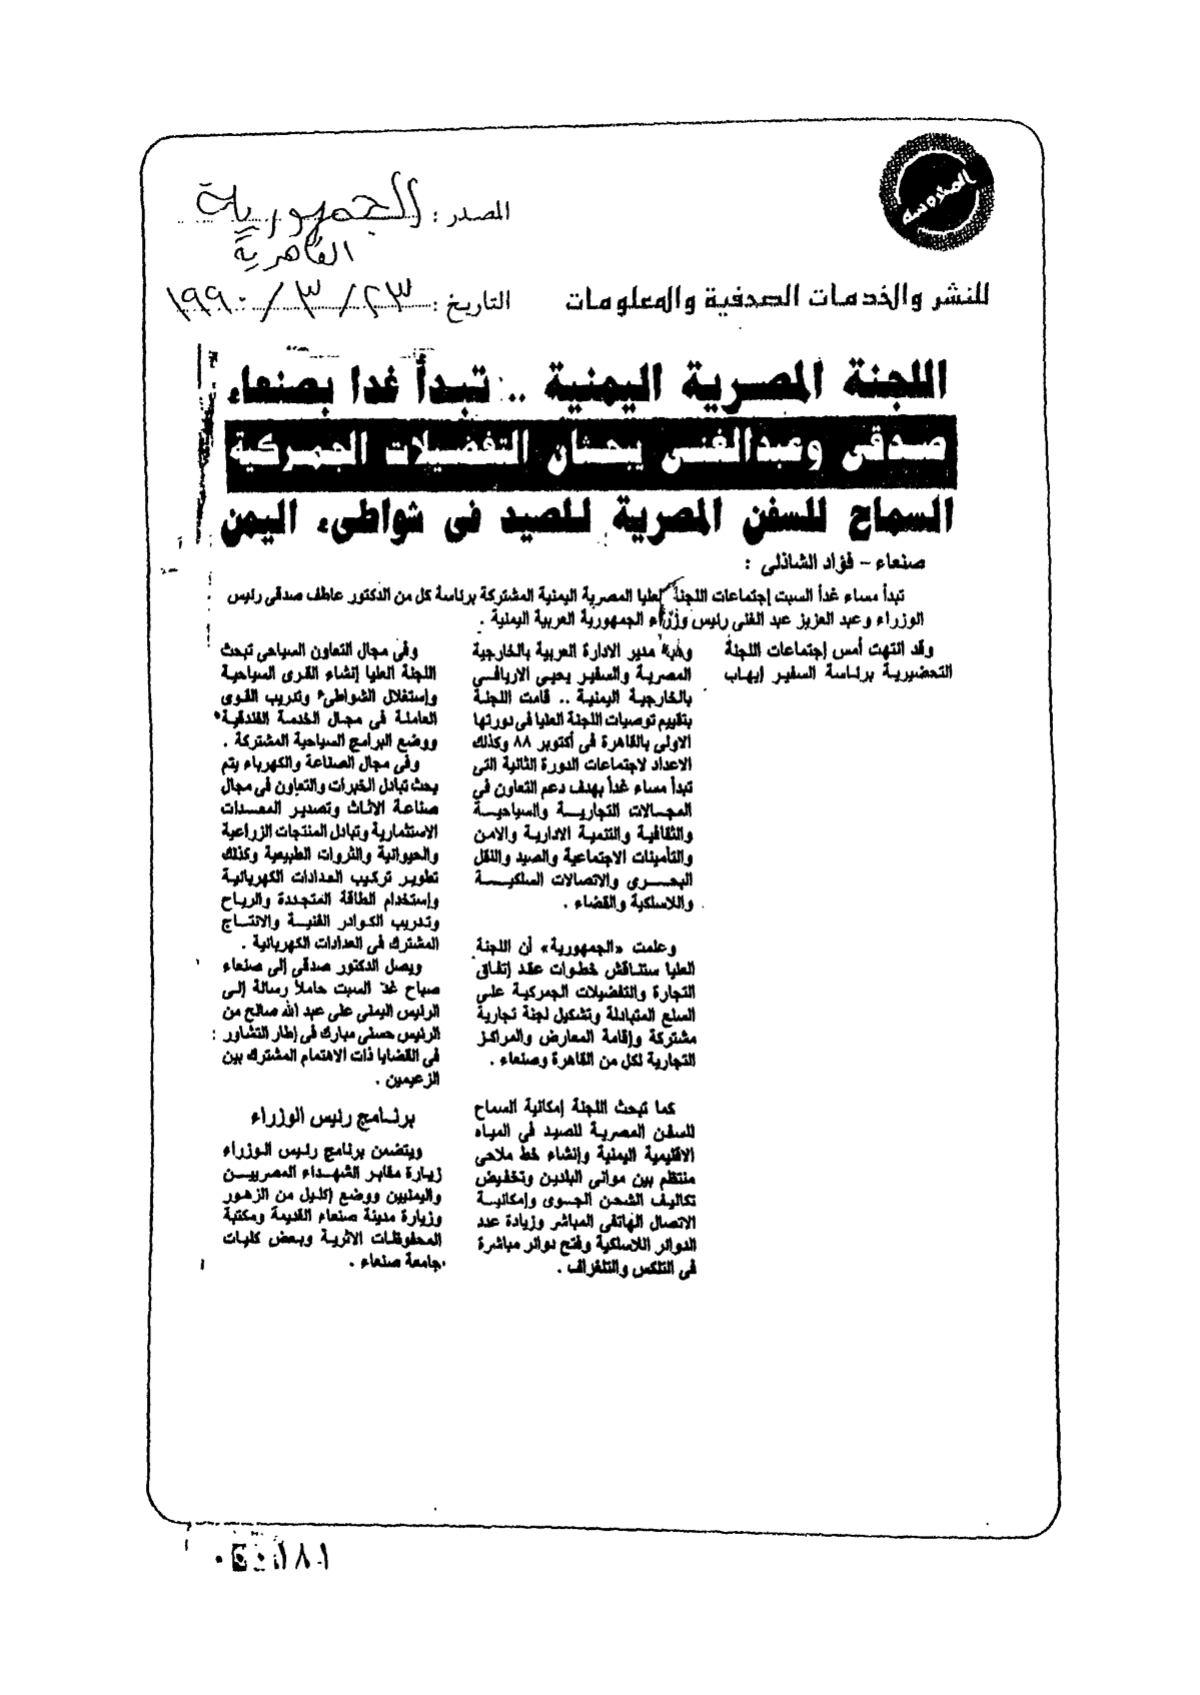 المدوسه
المصدر : الجمهورية
القاهرية
للنشر والخدمات الصحفية والمعلومات
التاريخ : ٢٣ / ٣ / ١٩٩٠
اللجنة المصرية اليمنية .. تبدأ غدا بصنعاء
صدقى وعبدالغنى يبحثان التفضيلات الجمركية
السماح للسفن المصرية للصيد فى شواطىء اليمن
صنعاء - فؤاد الشاذلى :
تبدأ مساء غداً السبت إجتماعات اللجنة العليا المصرية اليمنية المشتركة برئاسة كل من الدكتور عاطف صدقى رئيس
الوزراء وعبد العزيز عبد الغنى رئيس وزراء الجمهورية العربية اليمنية .
وقد انتهت أمس إجتماعات اللجنة
التحضيرية برئاسة السفير إيهاب
وهبه مدير الادارة العربية بالخارجية
المصرية والسفير يحيى الاريانى
بالخارجية اليمنية .. قامت اللجنة
بتقييم توصيات اللجنة العليا فى دورتها
الاولى بالقاهرة فى أكتوبر ٨٨ وكذلك
الاعداد لاجتماعات الدورة الثانية التى
تبدأ مساء غداً بهدف دعم التعاون فى
المجالات التجارية والسياحية
والثقافية والتنمية الادارية والامن
والتأمينات الاجتماعية والصيد والنقل
البحرى والاتصالات السلكية
واللاسلكية والقضاء .
وعلمت «الجمهورية» أن اللجنة
العليا ستناقش خطوات عقد إتفاق
التجارة والتفضيلات الجمركية على
السلع المتبادلة وتشكيل لجنة تجارية
مشتركة وإقامة المعارض والمراكز
التجارية لكل من القاهرة وصنعاء .
كما تبحث اللجنة إمكانية السماح
للسفن المصرية للصيد فى المياه
الاقليمية اليمنية وإنشاء خط ملاحى
منتظم بين موانى البلدين وتخفيض
تكاليف الشحن الجوى وإمكانية
الاتصال الهاتفى المباشر وزيادة عدد
الدوائر اللاسلكية وفتح دوائر مباشرة
فى التلكس والتلغراف .
وفى مجال التعاون السياحى تبحث
اللجنة العليا إنشاء القرى السياحية
وإستغلال الشواطىء وتدريب القوى
العاملة فى مجال الخدمة الفندقية
ووضع البرامج السياحية المشتركة .
وفى مجال الصناعة والكهرباء يتم
بحث تبادل الخبرات والتعاون فى مجال
صناعة الاثاث وتصدير المعدات
الاستثمارية وتبادل المنتجات الزراعية
والحيوانية والثروات الطبيعية وكذلك
تطوير تركيب العدادات الكهربائية
وإستخدام الطاقة المتجددة والرياح
وتدريب الكوادر الفنية والانتاج
المشترك فى العدادات الكهربائية .
ويصل الدكتور صدقى إلى صنعاء
صباح غد السبت حاملاً رسالة إلى
الرئيس اليمنى على عبد الله صالح من
الرئيس حسنى مبارك فى إطار التشاور
فى القضايا ذات الاهتمام المشترك بين
الزعيمين .
برنامج رئيس الوزراء
ويتضمن برنامج رئيس الوزراء
زيارة مقابر الشهداء المصريين
واليمنيين ووضع إكليل من الزهور
وزيارة مدينة صنعاء القديمة ومكتبة
المحفوظات الاثرية وبعض كليات
جامعة صنعاء .